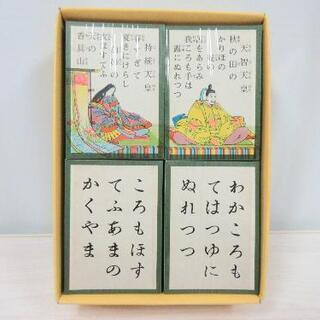 天智天皇
秋の田の
かりほの
苫をあらみ
我ころも手は
露にぬれつつ
持統天皇
すぎて
夏きにけらし
ほすてふ
香具山
わかころも
てはつゆに
ぬれつつ
ころもほす
てふあまの
かくやま